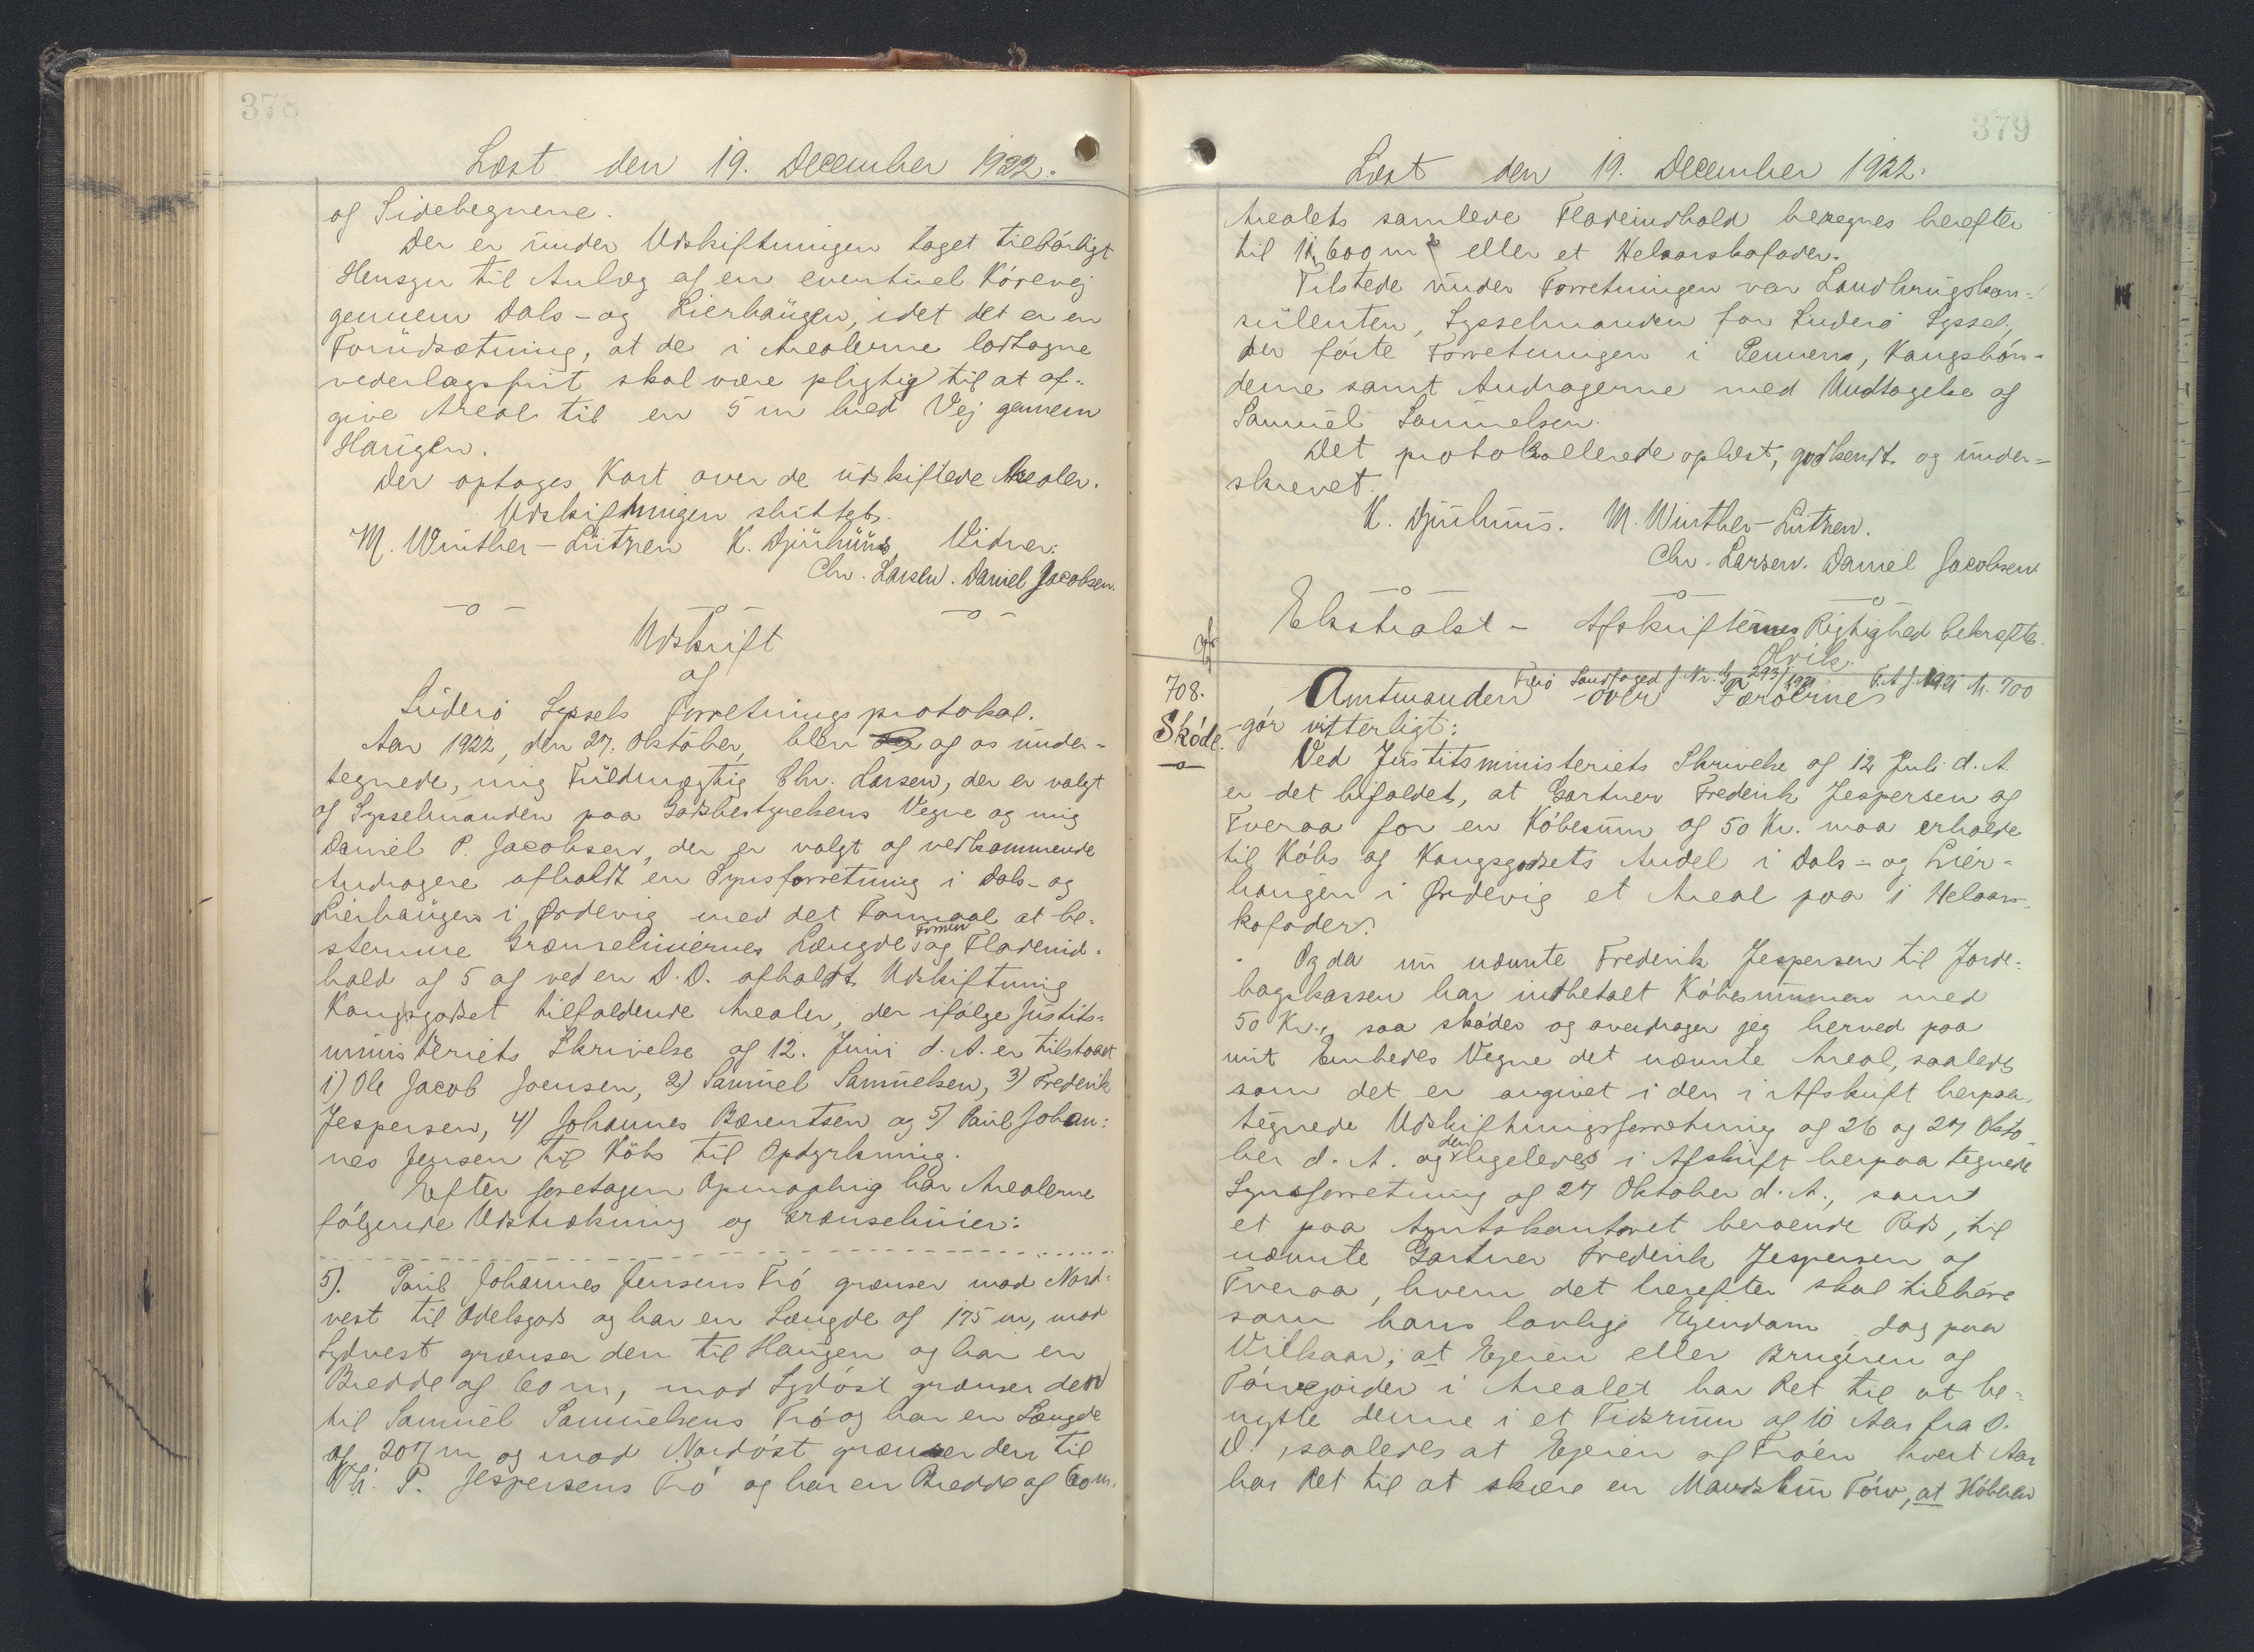 378
Læst den 19. December 1922.
af Sidehegnene.
Der er under Udskiftningen taget tilbørligt
Hensyn til Anlæg af en eventuel Kørevej
gennem Dals- og Lierhaugen, idet det er en
Forudsætning, at de i Arealerne lodtagne
vederlagsfrit skal være pligtig til at af-
give Areal til en 5 m bred Vej gennem
Haugen.
Der optages Kort over de udskiftede Arealer.
Udskiftningen sluttet.
M. Winther-Lützen K. Djurhuus Vidner:
Chr. Larsen. Daniel Jacobsen.
Udskrift
af
Suderø Syssels Forretningsprotokol.
Aar 1922, den 27. Oktober, blev af os under-
tegnede, mig Fuldmægtig Chr. Larsen, der er valgt
af Sysselmanden paa Godsbestyrelsens Vegne og mig
Daniel P. Jacobsen, der er valgt af vedkommende
Andragere afholdt en Synsforretning i Dals- og
Lierhaugen i Ørdevig med det Formaal at be-
stemme Grænseliniernes Længde, Formen og Fladeind-
hold af 5 af ved en D.D. afholdt Udskiftning
Kongsgodset tilfaldende Arealer, der ifølge Justits-
ministeriets Skrivelse af 12. Juni d. A. er tilstaaet
1) Ole Jacob Joensen, 2) Samuel Samuelsen, 3) Frederik
Jespersen, 4) Johannes Bærentsen og 5) Paul Johan-
nes Jensen til Købs til Opdyrkning.
Efter foretagen Opmaaling har Arealerne
følgende Udstrækning og Grænselinier:
5). Paul Johannes Jensens Trø grænser mod Nord-
vest til Odelsgods og har en Længde af 175 m, mod
Sydvest grænser den til Haugen og har en
Bredde af 60 m, mod Sydøst grænser den
til Samuel Samuelsens Trø og har en Længde
af 207 m og mod Nordøst grænser den til
P. Jespersens Trø og har en Bredde af 60 m.
379
Læst den 19. December 1922.
Arealets samlede Fladeindhold beregnes herefter
til 11,600 m² eller et Helaarskofoder.
Tilstede under Forretningen var Landbrugskon-
sulenten, Sysselmanden for Suderø Syssel,
der førte Forretningen i Pennen, Kongsbøn-
derne samt Andragerne med Undtagelse af
Samuel Samuelsen.
Det protokollerede oplæst, godkendt og under-
skrevet.
K. Djurhuus. M. Winther-Lützen.
Chr. Larsen. Daniel Jacobsen
Ekstrakt - Afskrifternes Rigtighed bekræftes.
Færø Landfoged J. Nr. 293/1921 F.A.J. 1921 Nr. 700
708.
Skøde.
Amtmanden over Færøerne
gør vitterligt:
Ved Justitsministeriets Skrivelse af 12 Juli d. A.
er det bifaldet, at Gartner Frederik Jespersen af
Tveraa for en Købesum af 50 Kr. maa erholde
til Købs af Kongsgodsets Andel i Dals- og Lier-
haugen i Ørdevig et Areal paa 1 Helaars-
kofoder.
Og da nu nævnte Frederik Jespersen til Jorde-
bogskassen har indbetalt Købesummen med
50 Kr., saa skøder og overdrager jeg herved paa
mit Embedes Vegne det nævnte Areal, saaledes
som det er angivet i den i Afskrift herpaa-
tegnede Udskiftningsforretning af 26 og 27 Okto-
ber d. A. og den ligeledes i Afskrift herpaa tegnede
Synsforretning af 27 Oktober d. A., samt
et paa Amtskontoret beroende Rids, til
nævnte Gartner Frederik Jespersen af
Tveraa, hvem det herefter skal tilhøre
som hans lovlige Ejendom dog paa
Vilkaar, at Ejeren eller Brugeren af
Tørvejorder i Arealet har Ret til at be-
nytte denne i et Tidsrum af 10 Aar fra D.
D., saaledes at Ejeren af Trøen hvert Aar
har Ret til at skære en Mands Tørv, at Køberen